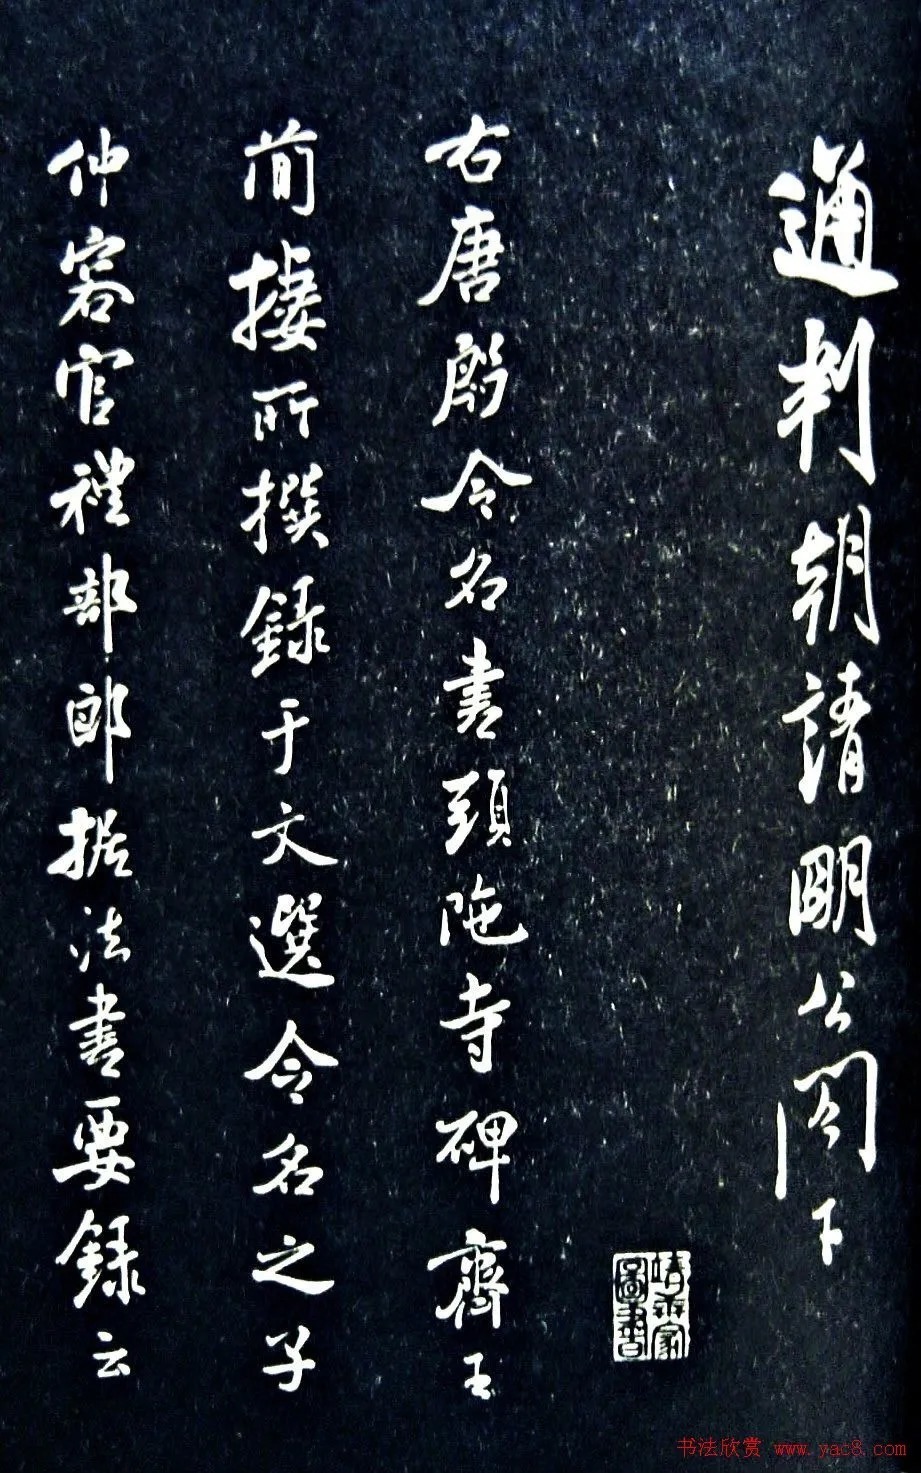 通判朝請明公閣下
右唐殷令名書頭陁寺碑齊王
簡捿所撰録于文選令名之子
仲容官禮部郎据法書要録云
圖書
书法欣赏 www.yac8.com